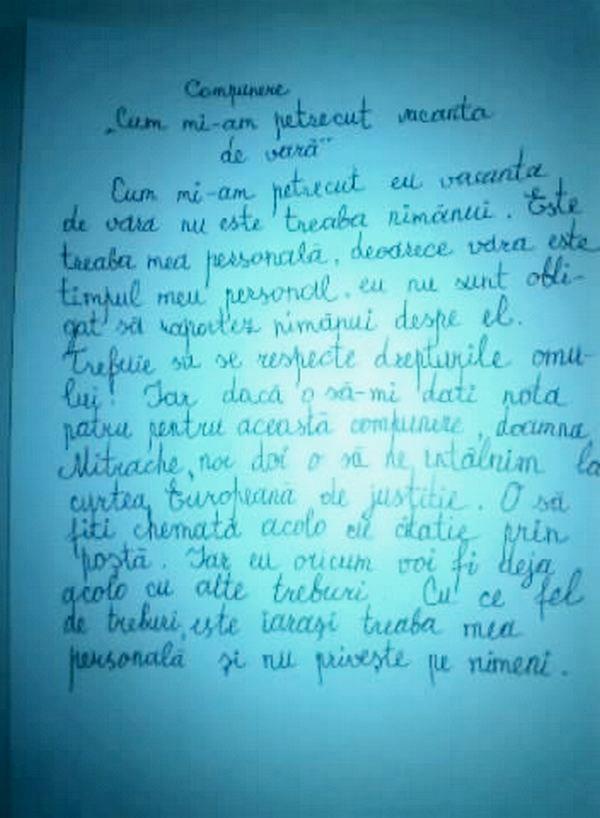 Compunere
„Cum mi-am petrecut vacanta
de vară"
Cum mi-am petrecut eu vacanta
de vara nu este treaba nimănui. Este
treaba mea personală, deoarece vara este
timpul meu personal. eu nu sunt obli-
gat să raportez nimănui despe el.
Trebuie să se respecte drepturile omu-
lui! Iar dacă o să-mi dati nota
patru pentru această compunere, doamna
Mitrache, noi doi o să ne întâlnim la
curtea Europeană de justitie. O să
fiti chemată acolo cu citatie prin
poştă. Iar eu oricum voi fi deja
acolo cu alte treburi Cu ce fel
de treburi, este iarăşi treaba mea
personală şi nu priveşte pe nimeni.